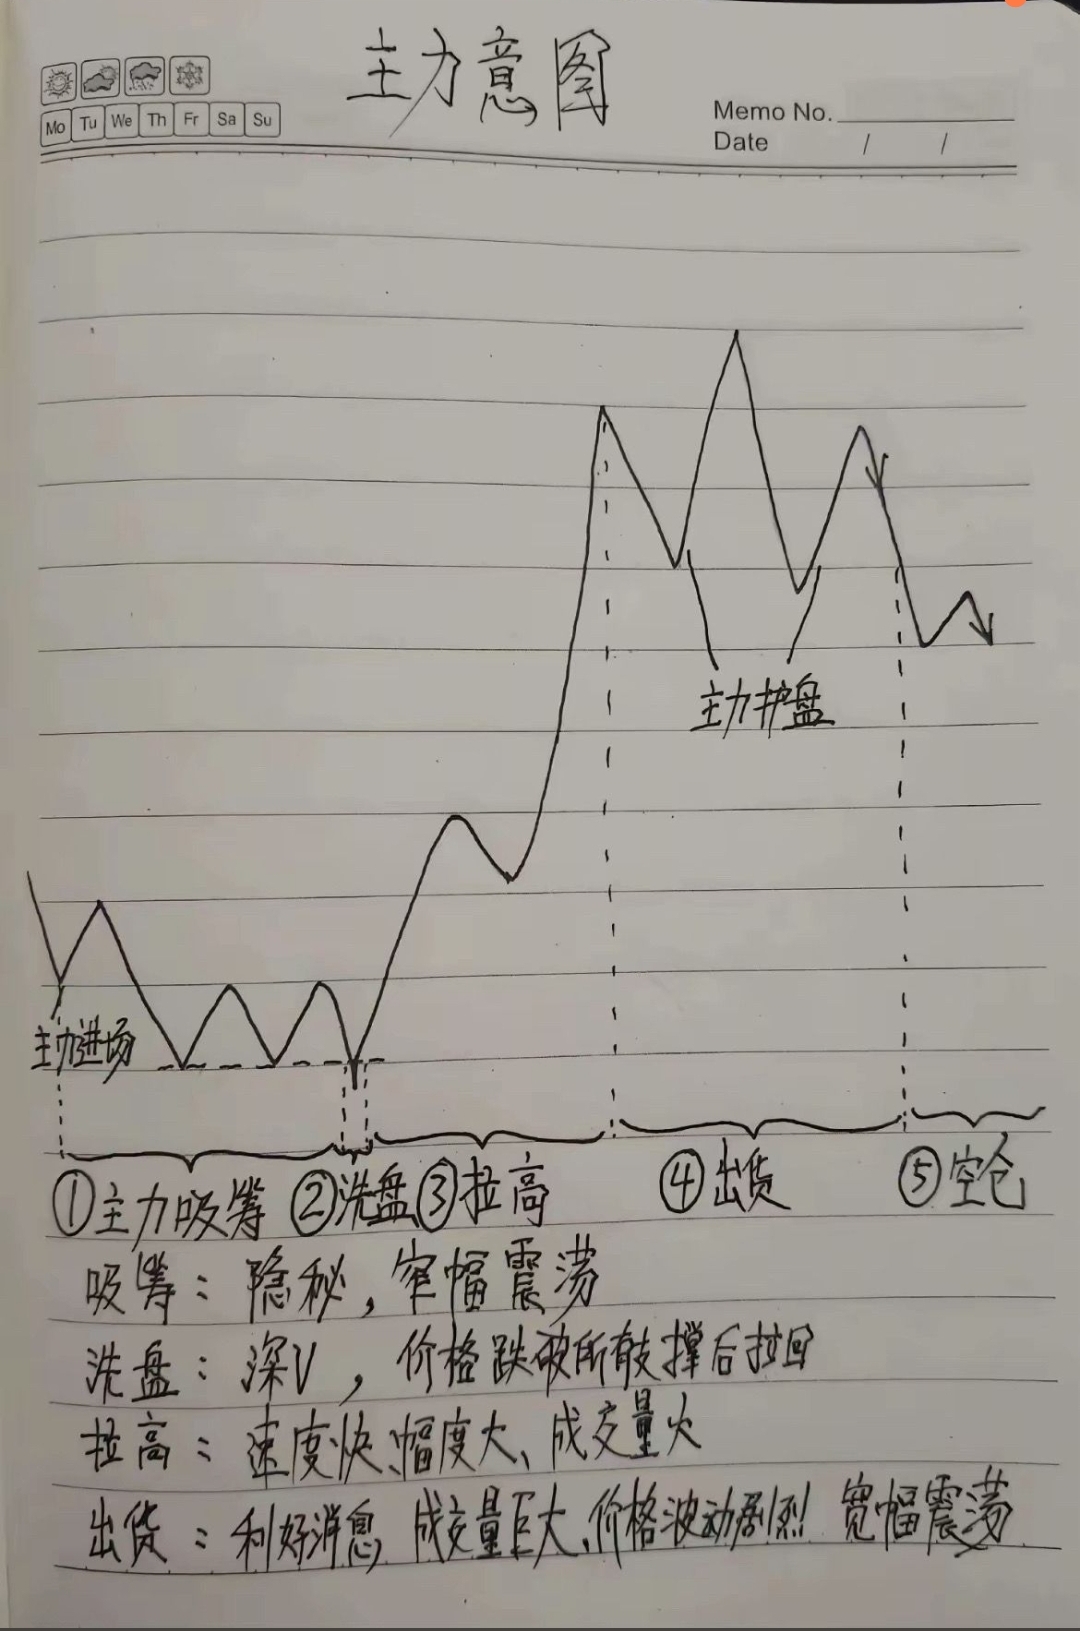 主力意图
Mo Tu We Th Fr Sa Su
Memo No.
Date / /
主力护盘
主力进场
①主力吸筹 ②洗盘 ③拉高 ④出货 ⑤空仓
吸筹：隐秘，窄幅震荡
洗盘：深V，价格跌破所有支撑后拉回
拉高：速度快、幅度大、成交量火
出货：利好消息 成交量巨大、价格波动剧烈 宽幅震荡